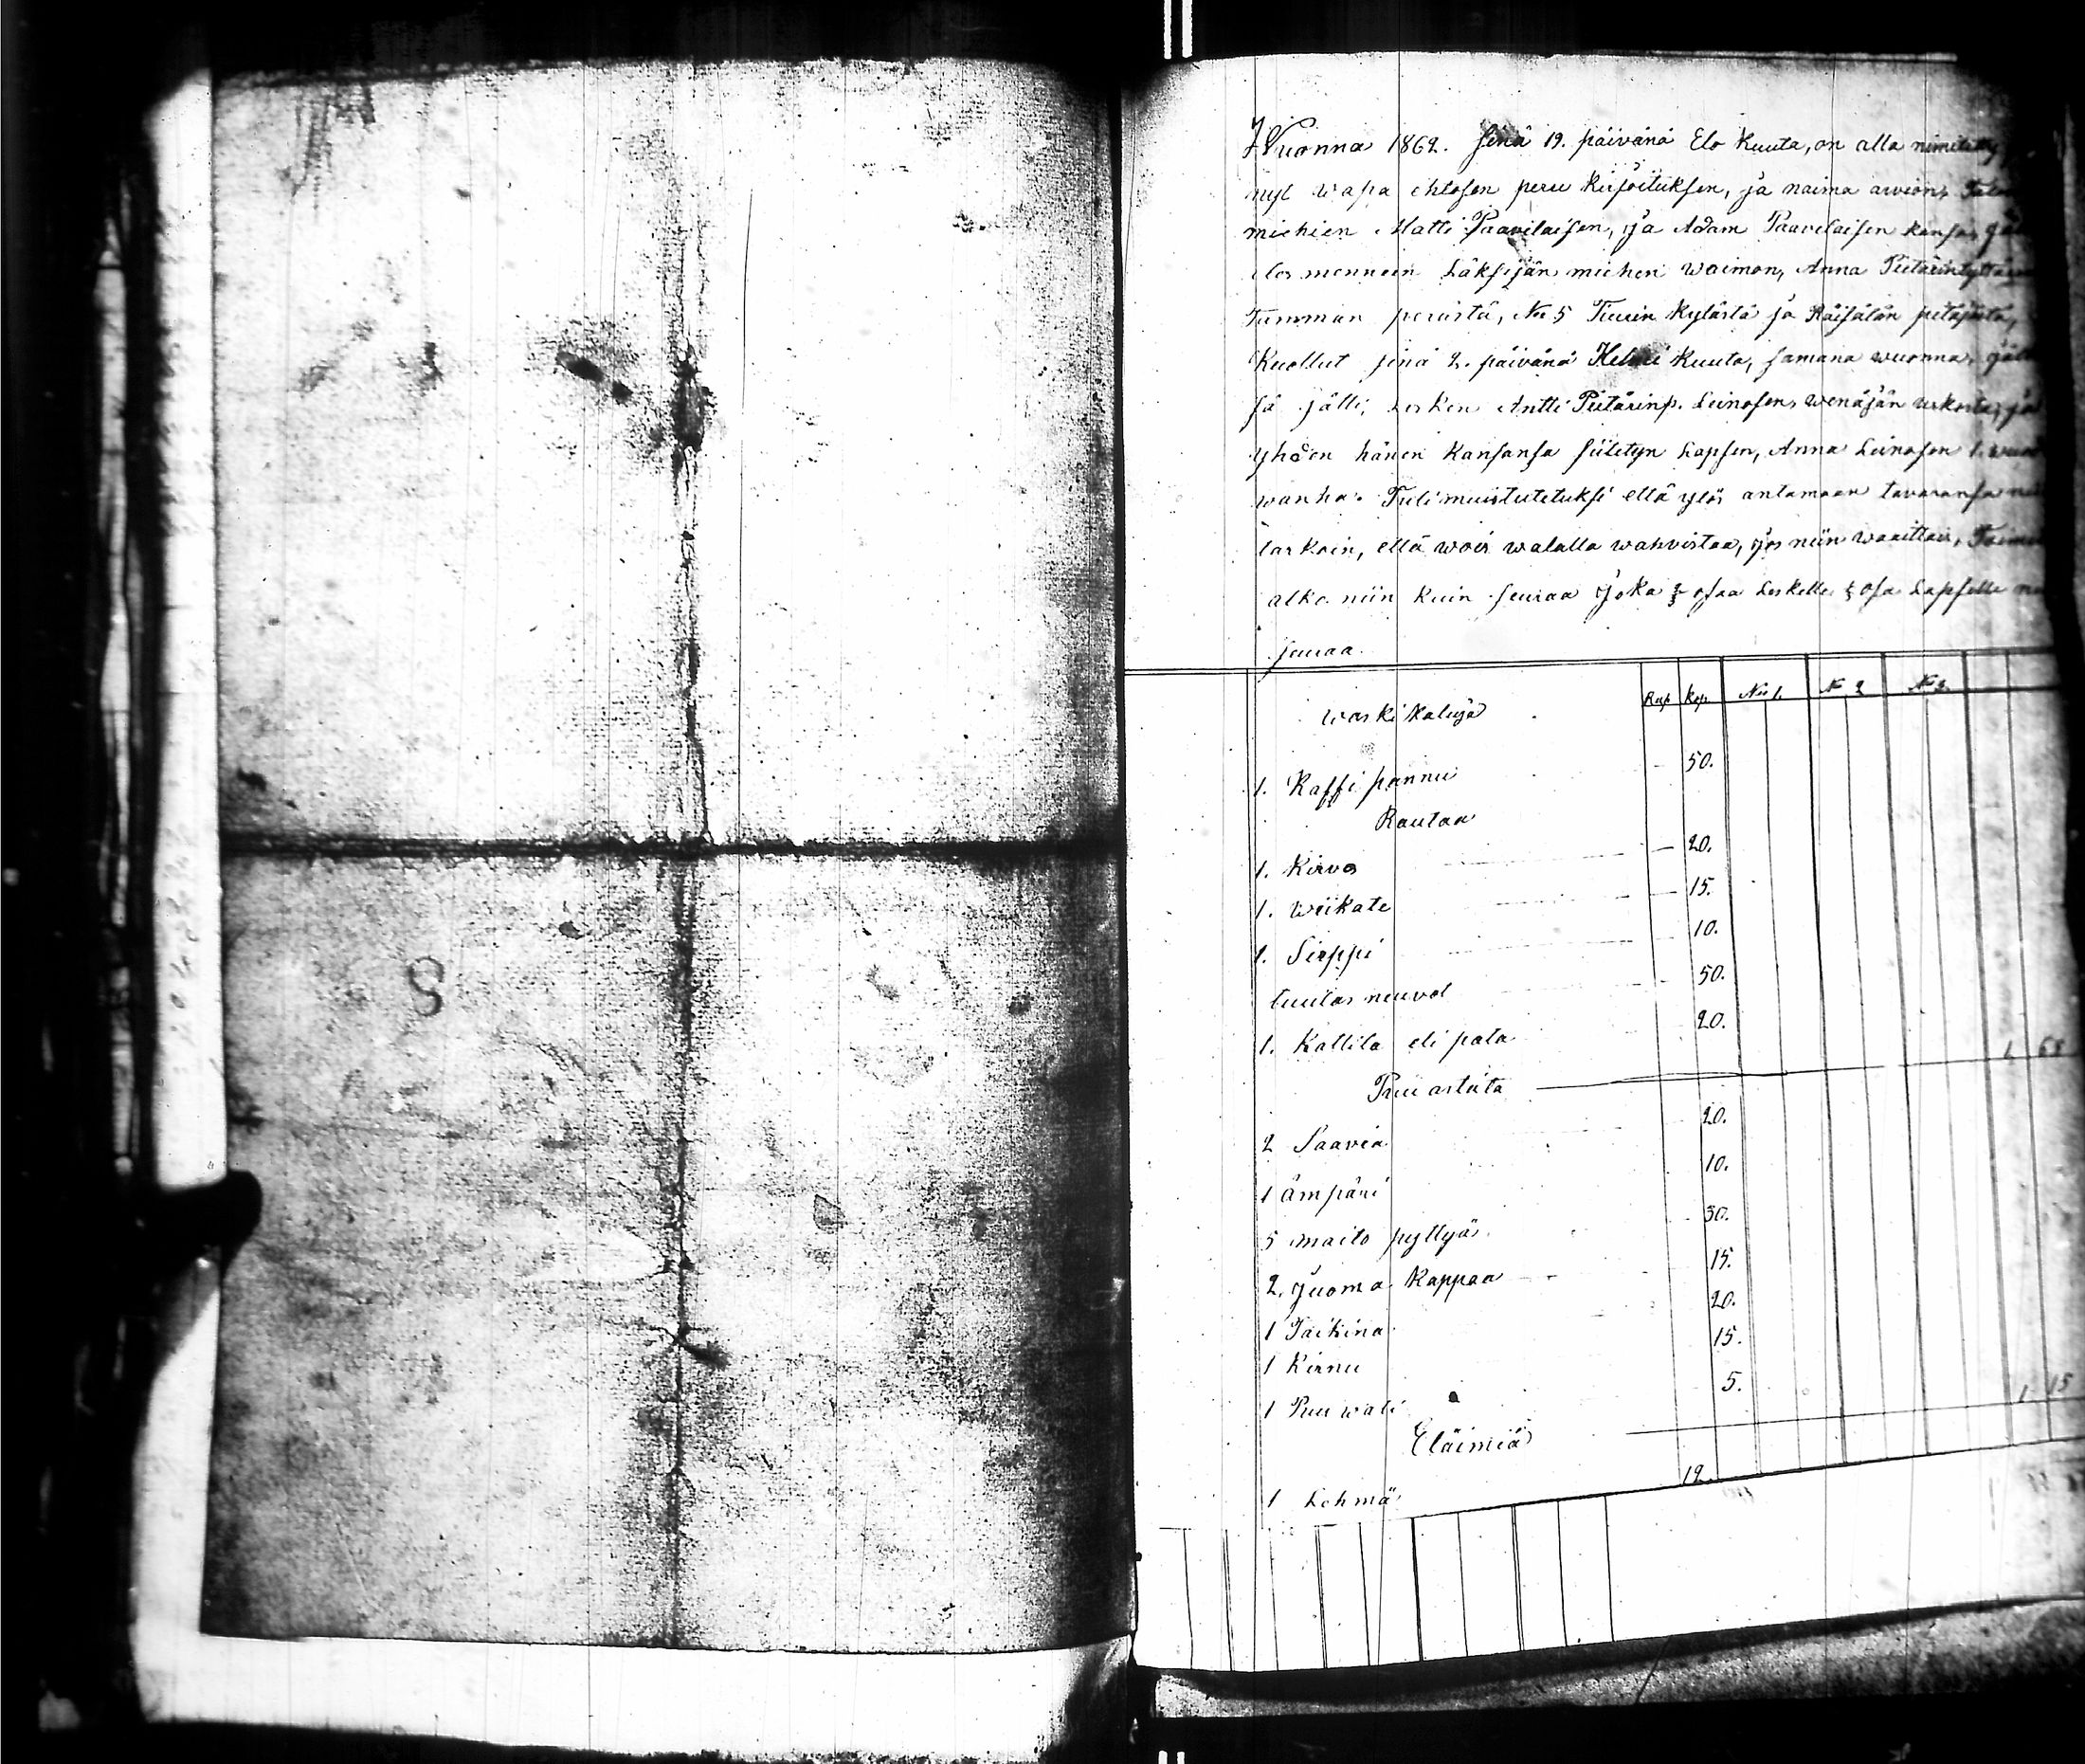 Wuonna 1862. Sinä 19. päivänä Elo Kuuta, on alla
nyt wapa ehtosen peru kirjoituksen, ja naima arvion,
miehien Matti Paavilaisen, ja Adam Paavilaisen kansa,
edes mennen Läksijän miehen Waimon, Anna Pietärintyttären
Tumman perästä, No 5 Tiurin kylästä ja Räisälän pitäjästä,
Kuollut sinä 2. päivänä Helmi Kuuta, samana wuonna,
sä jälli, Lesken Antti Pietärinp. Leinosen, wenäjän uskosta, ja
yhden hänen kansansa siitetyn Lapsen, Anna Leinosen 1.
wanha. Tuli muistutetuksi että ylös antamaan tavaransa
tarkoin, että wois walalla wahvistaa, jos niin waaittais,
alko niin kuin seuraa Joka osaa Leskelle osa Lapselle
seuraa.
waski kaluja Rup Kop. No 1. No 2 No 3.
1. Kaffi pannu — 50.
Rautaa
1. Kirves — 20.
1. wiikate — 15.
1. Sirppi 10.
tuulas neuvot 50.
1. Kattila eli pata 20.
1. 65
Puu astiita
2 Saavia 20.
1 ämpäri 10.
5 maito pyttyä 30.
2. Juoma Kappaa 15.
1 Taikina 20.
1 Kirnu 15.
1 Puu wati 5.
1 15
Eläimiä
1 Lehmä 12.